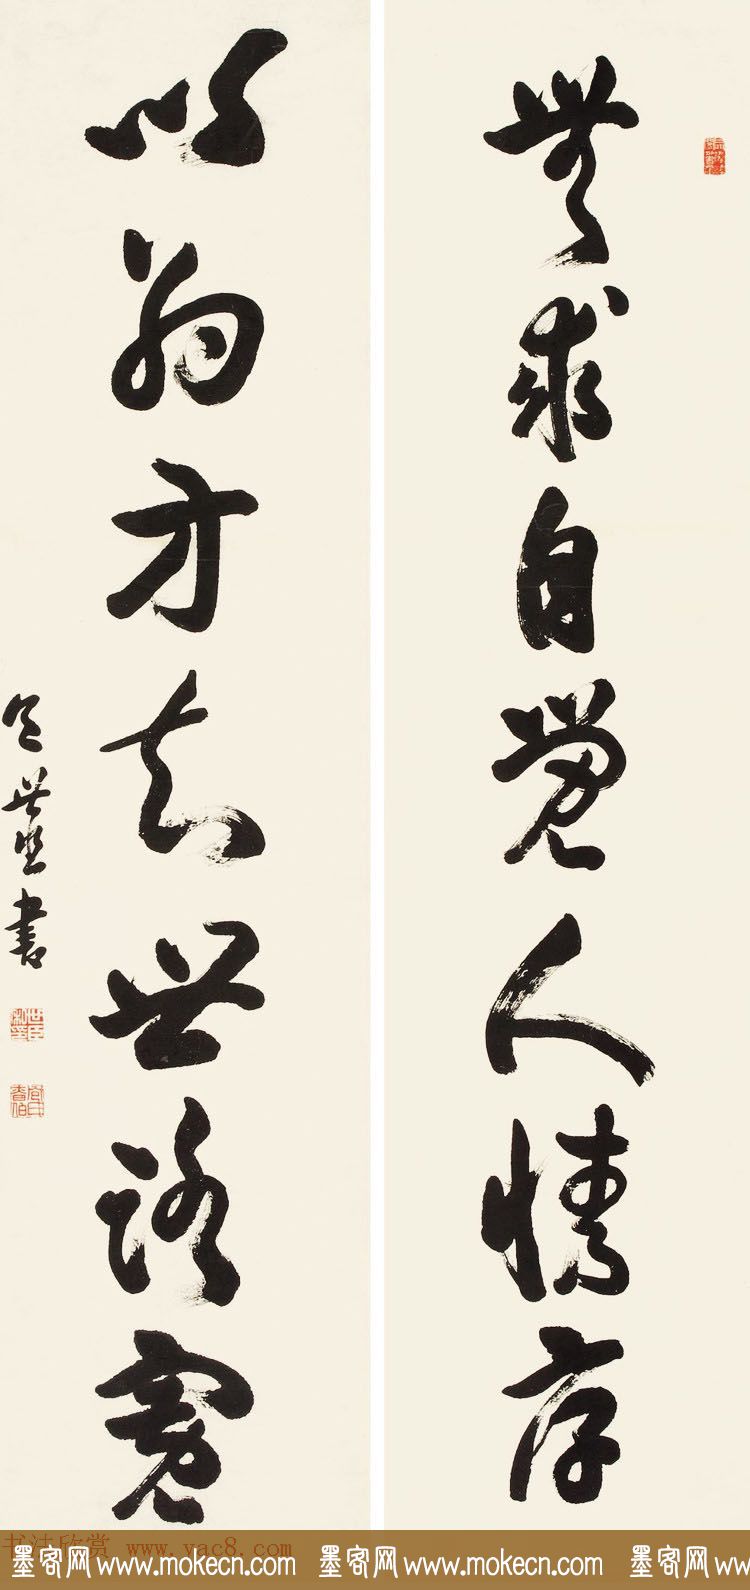 無求自覺人情厚
以約方知世路寬
呂世宜書
书法欣赏 www.yac8.com
墨客网 www.mokecn.com 墨客网 www.mokecn.com 墨客网 www.mo